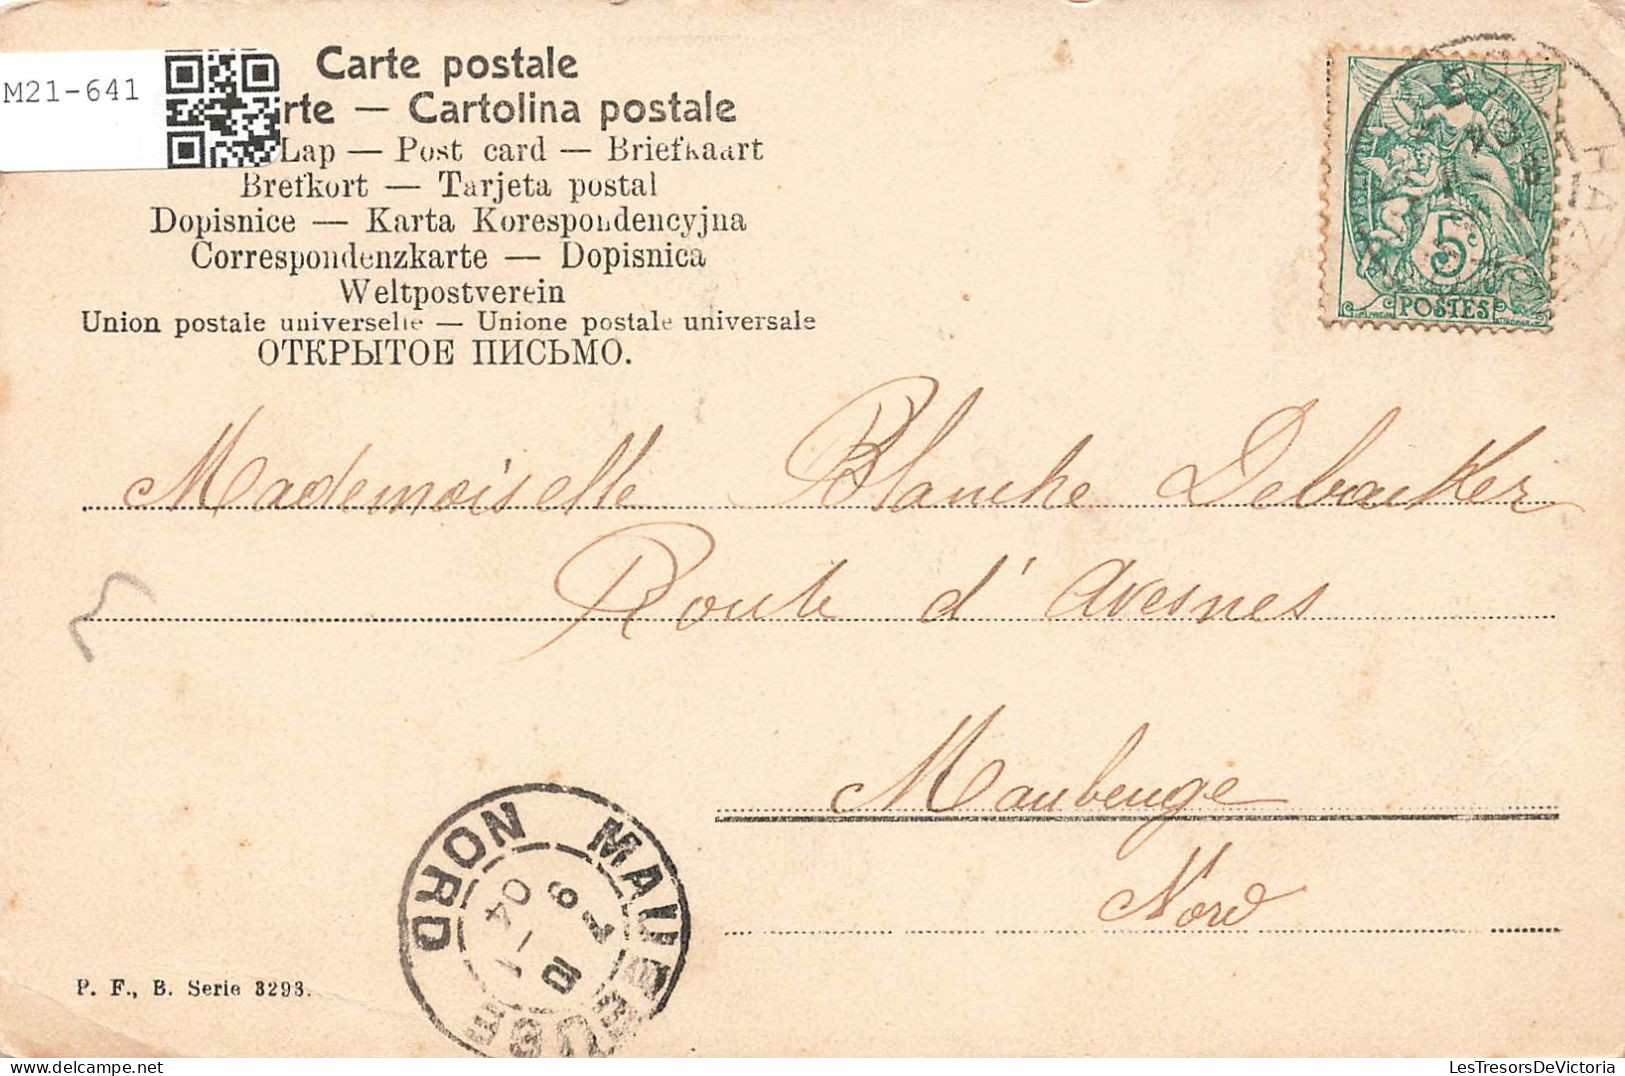 M21-641
Carte postale
rte — Cartolina postale
Lap — Post card — Briefkaart
Brefkort — Tarjeta postal
Dopisnice — Karta Korespondencyjna
Correspondenzkarte — Dopisnica
Weltpostverein
Union postale universelle — Unione postale universale
ОТКРЫТОЕ ПИСЬМО.
5c
POSTES
Mademoiselle Blanche Debacker
Route d'Avesnes
Maubeuge
Nord
MAUBEUGE
NORD
04
P. F., B. Serie 3293.
LesTresorsDeVictoria.com